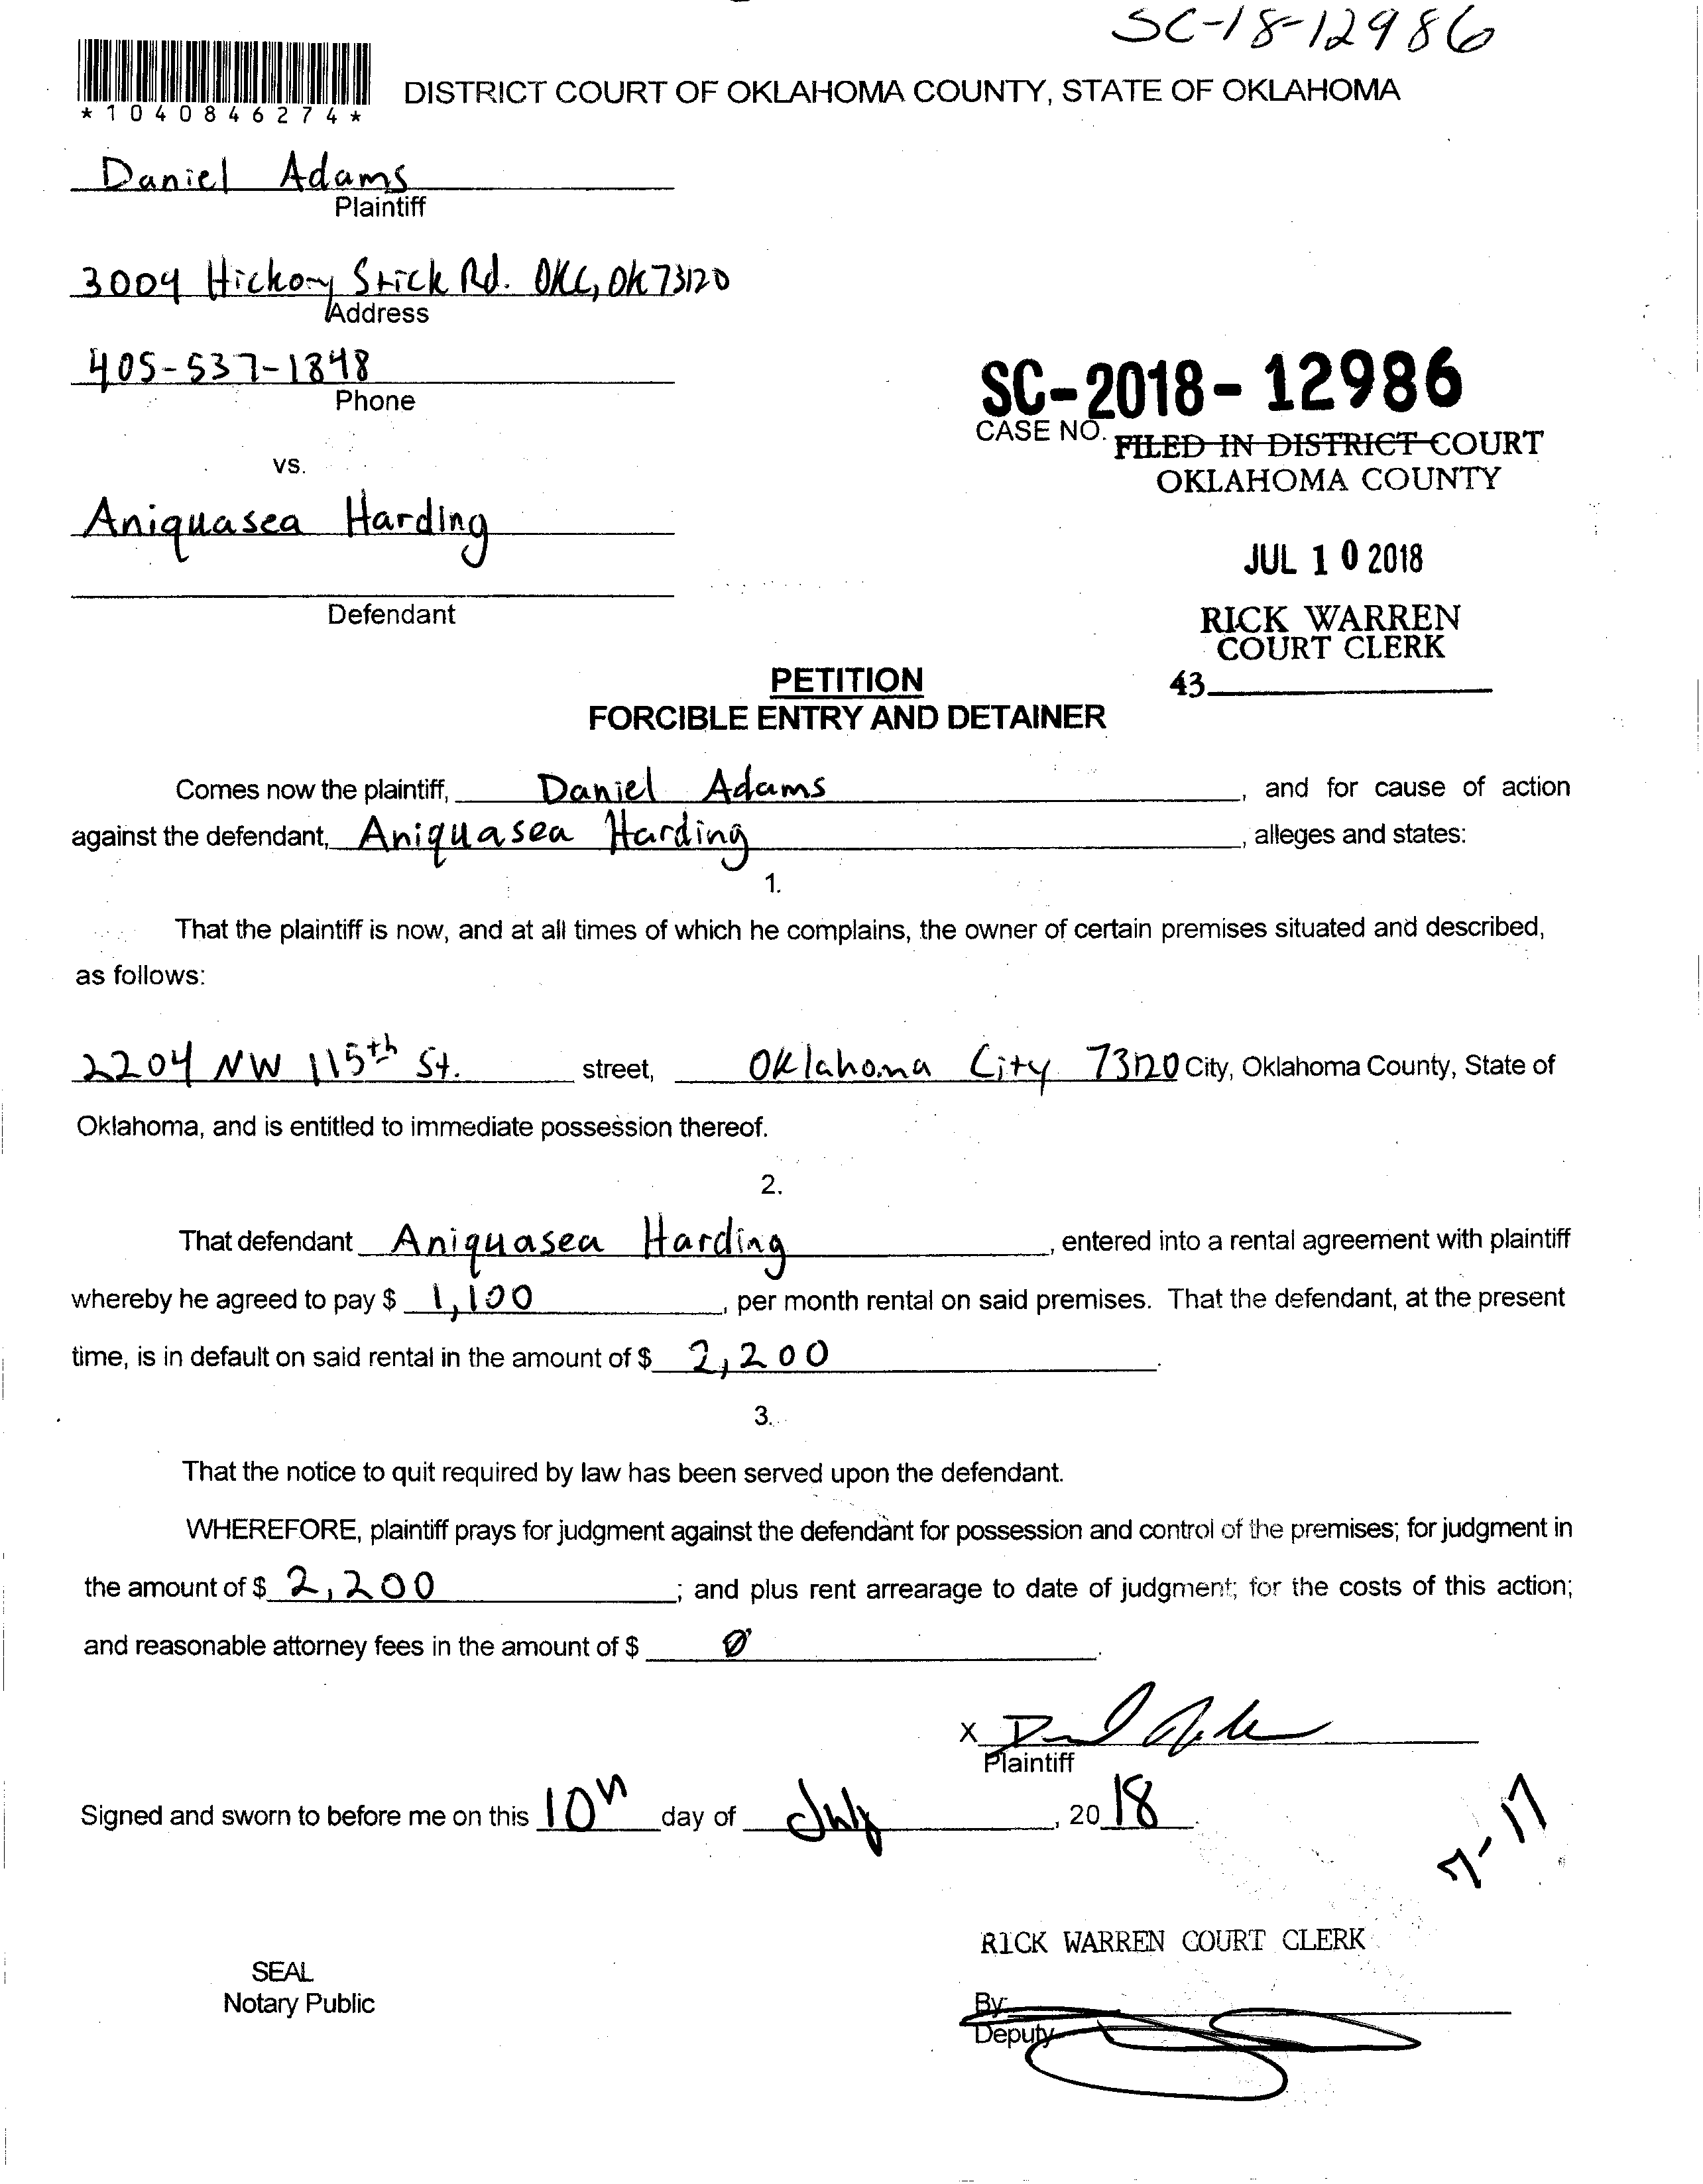 SC-18-12986
*1040846274*
DISTRICT COURT OF OKLAHOMA COUNTY, STATE OF OKLAHOMA
Daniel Adams
Plaintiff
3004 Hickory Stick Rd. OKC, OK 73120
Address
405-537-1848
Phone
SC-2018-12986
CASE NO.
FILED IN DISTRICT COURT
OKLAHOMA COUNTY
vs.
Aniquasea Harding
JUL 10 2018
Defendant
RICK WARREN
COURT CLERK
43
PETITION
FORCIBLE ENTRY AND DETAINER
Comes now the plaintiff, Daniel Adams, and for cause of action
against the defendant, Aniquasea Harding, alleges and states:
1.
That the plaintiff is now, and at all times of which he complains, the owner of certain premises situated and described,
as follows:
2204 NW 115th St. street, Oklahoma City 73120 City, Oklahoma County, State of
Oklahoma, and is entitled to immediate possession thereof.
2.
That defendant Aniquasea Harding, entered into a rental agreement with plaintiff
whereby he agreed to pay $ 1,100, per month rental on said premises. That the defendant, at the present
time, is in default on said rental in the amount of $ 2,200.
3.
That the notice to quit required by law has been served upon the defendant.
WHEREFORE, plaintiff prays for judgment against the defendant for possession and control of the premises; for judgment in
the amount of $ 2,200; and plus rent arrearage to date of judgment; for the costs of this action;
and reasonable attorney fees in the amount of $ 0.
X
Plaintiff
Signed and sworn to before me on this 10th day of July, 2018.
7-17
RICK WARREN COURT CLERK
SEAL
Notary Public
By:
Deputy